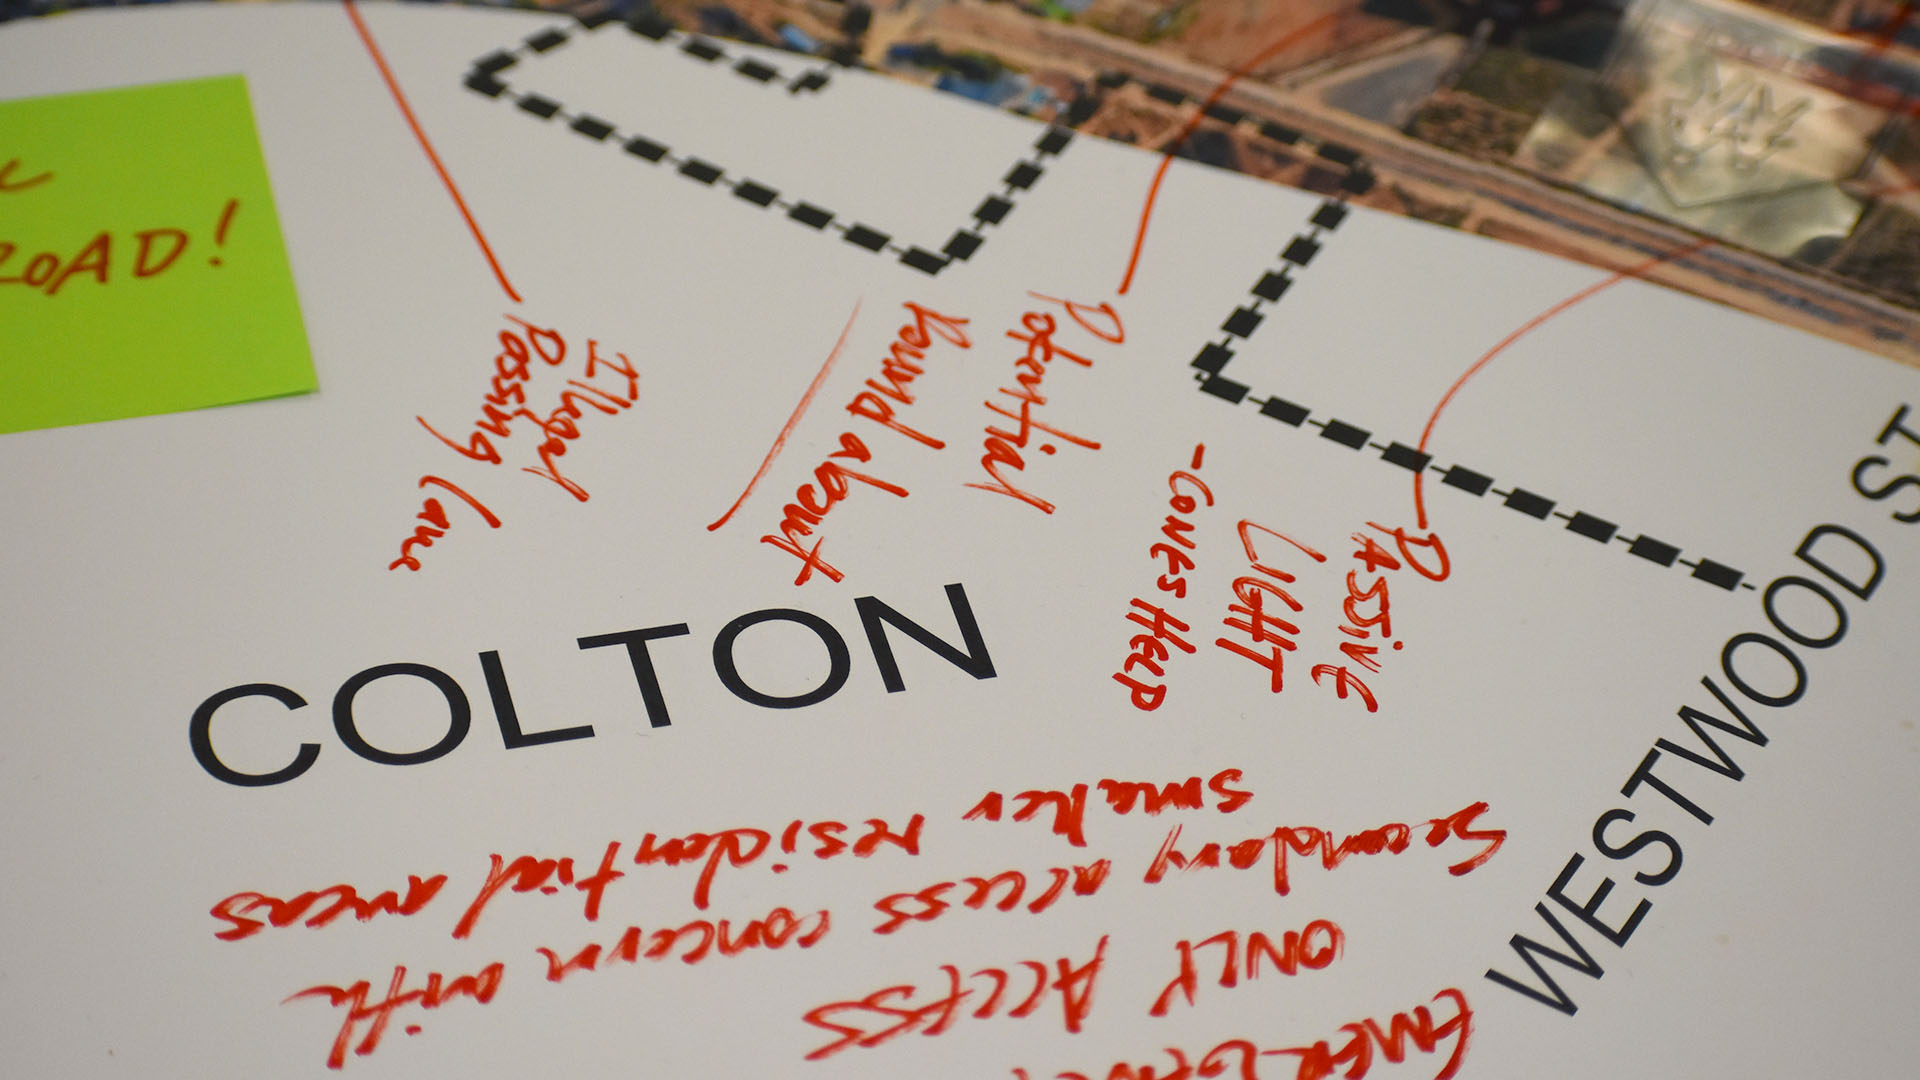 ROAD!
Illegal
Passing lane
Potential
Round about
PASSIVE
LIGHT
- CONES HELP
COLTON
WESTWOOD ST
ONLY ACCESS
Secondary access concern with
smaller residential areas